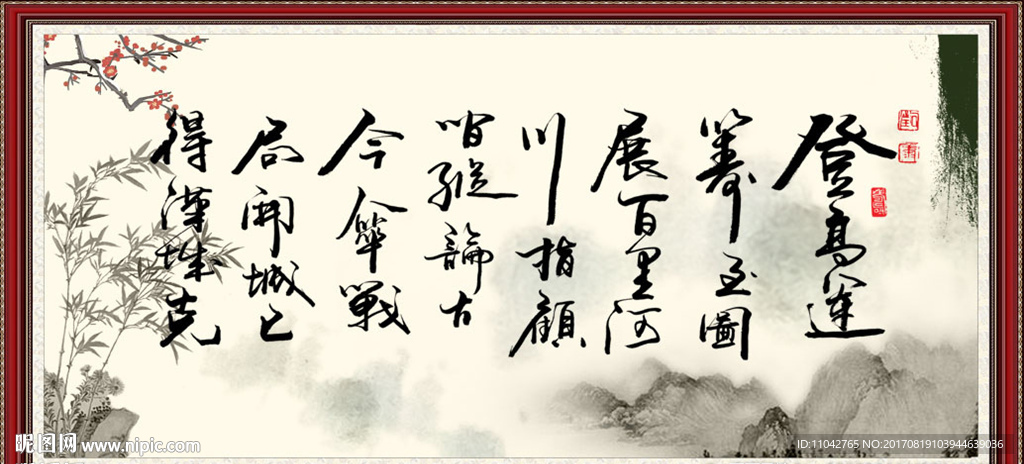 登高運
籌圖
展百里河
川指顧
間縱論古
今戰
局開城已
得漢城克
昵图网 www.nipic.com
ID:11042765 NO:20170819103944639036